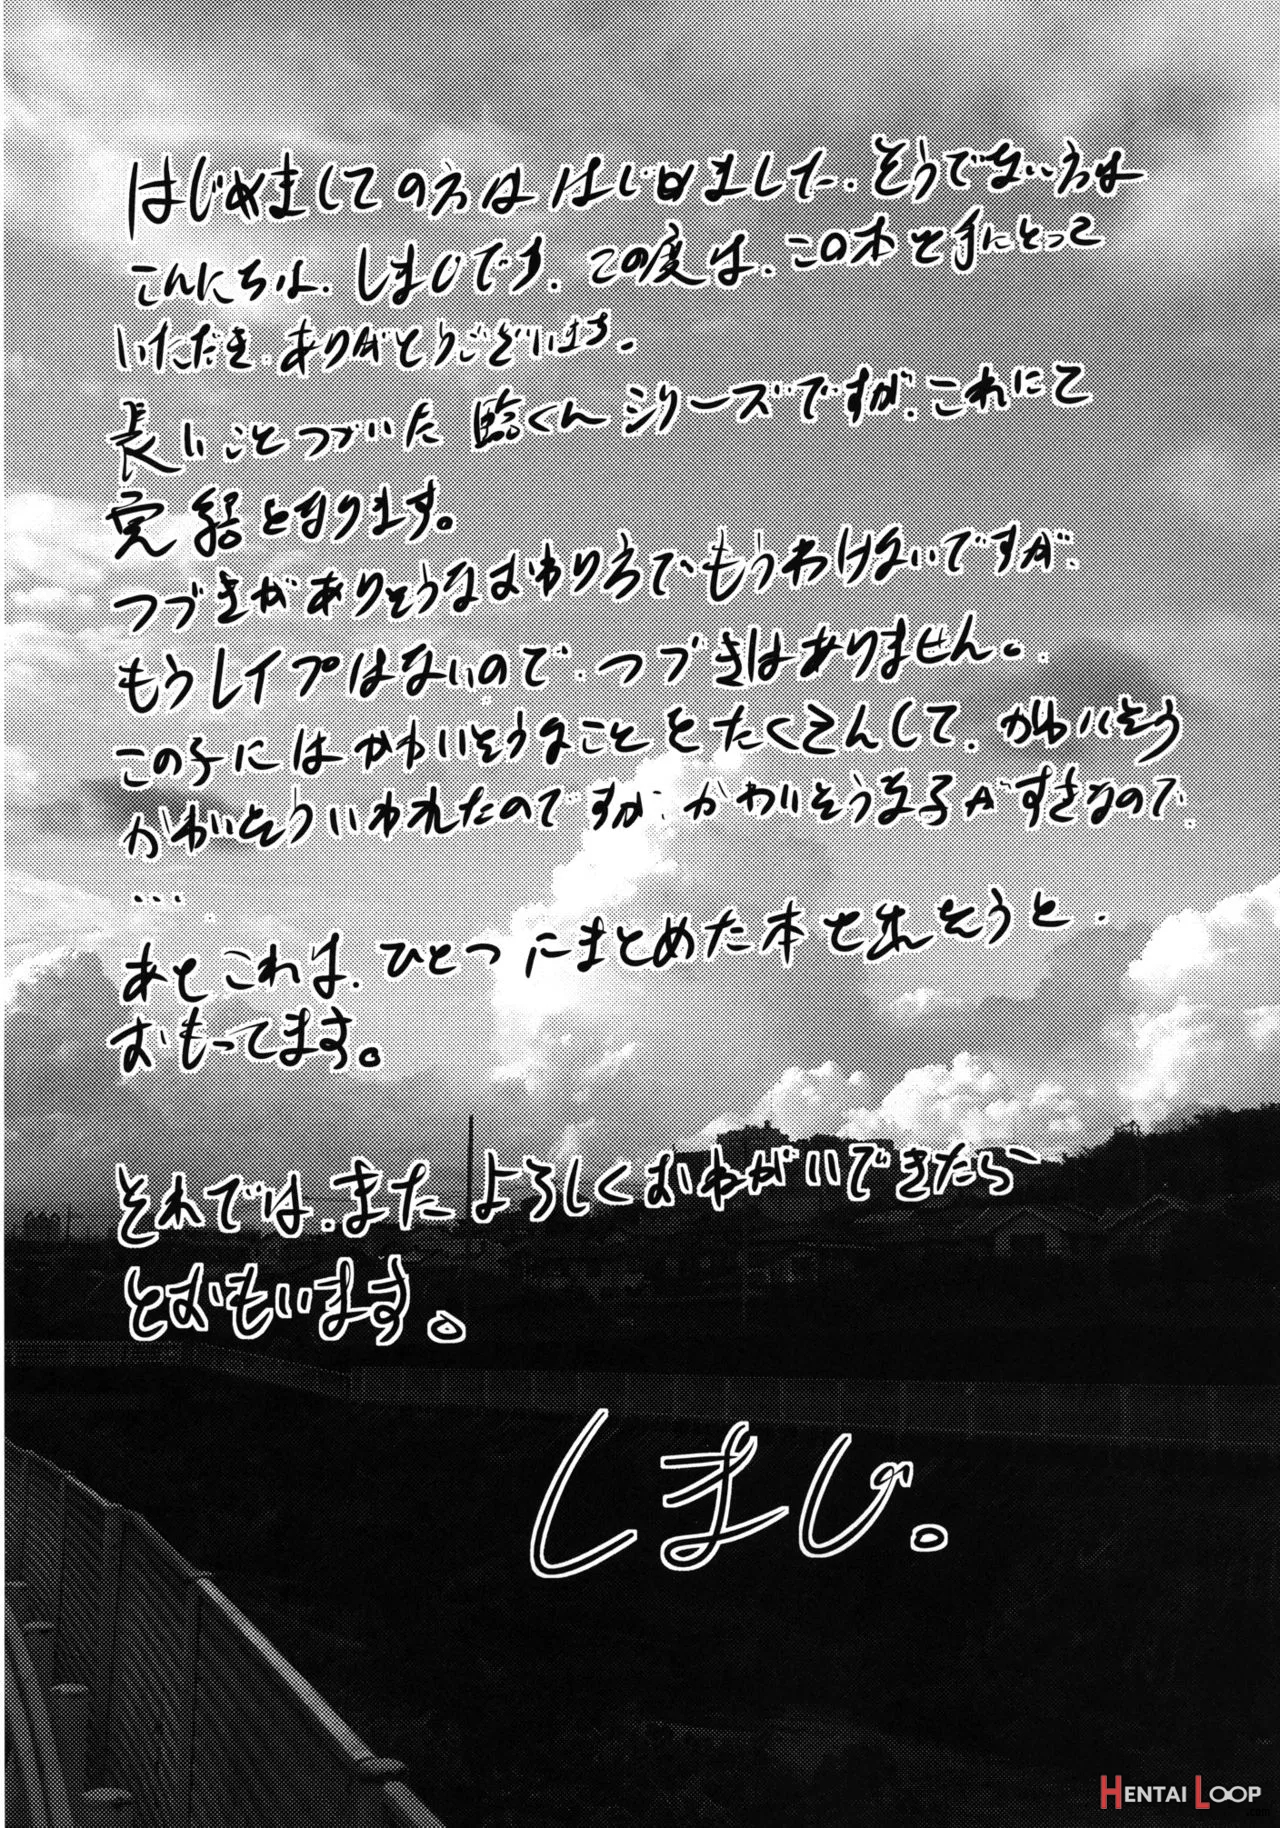 はじめましての方ははじめました。そうでない方は
こんにちは、しまじです。この度は、この本を手にとって
いただき、ありがとうございます。
長いことつづいた くんシリーズですが、これにて
完結となります。
つづきがありそうなおわり方でもうわけないですが、
もうレイプはないので、つづきはありません。
この子にはかわいそうなことをたくさんして、かわいそう
かわいそういわれたのですが、かわいそうな子がすきなので、
...
あとこれは、ひとつにまとめた本を出そうと、
おもってます。
それでは、またよろしくおねがいできたら
とおもいます。
しまじ。
HENTAI LOOP
.com